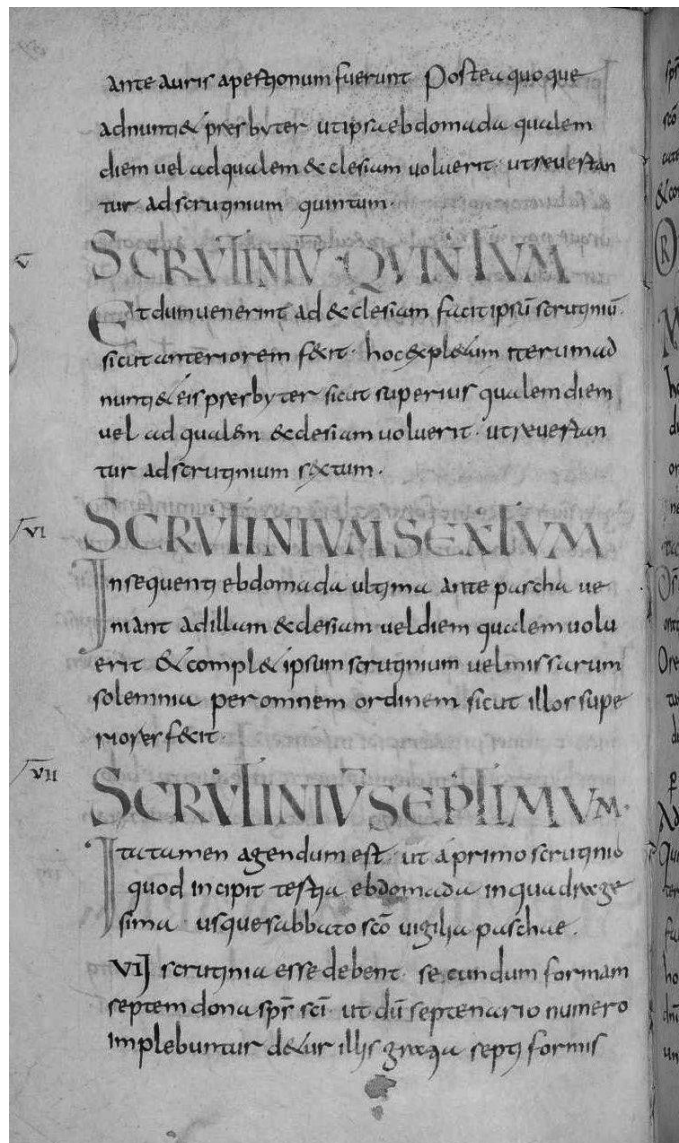 ante auris apertionum fuerunt Postea quoque
adnunti& presbyter ut ipsa ebdomada qualem
diem vel ad qualem &clesiam voluerit · ut revertan
tur ad scrutinium quintum ·
V
SCRUTINIŪ QUINTUM
Et dum venerint ad &clesiam facit ipsū scrutiniū
sicut anteriorem fecit · hoc expl&um iterum ad
nunti& eis presbyter sicut superius qualem diem
vel ad qualem &clesiam voluerit · ut revertan
tur ad scrutinium sextum ·
VI
SCRUTINIUM SEXTUM
In sequenti ebdomada ultima ante pascha ve
niant ad illam &clesiam vel diem qualem volu
erit & compl& ipsum scrutinium vel missarum
solemnia per omnem ordinem sicut illos supe
riores fecit
VII
SCRUTINIŪ SEPTIMUM ·
Ita tamen agendum est · ut a primo scrutinio
quod incipit tertia ebdomada in quadrage
sima · usque sabbato scō vigilia paschae ·
VII scrutinia esse debent · secundum formam
septem dona sps sci · ut dū septenario numero
implebuntur detur illis gratia septiformis